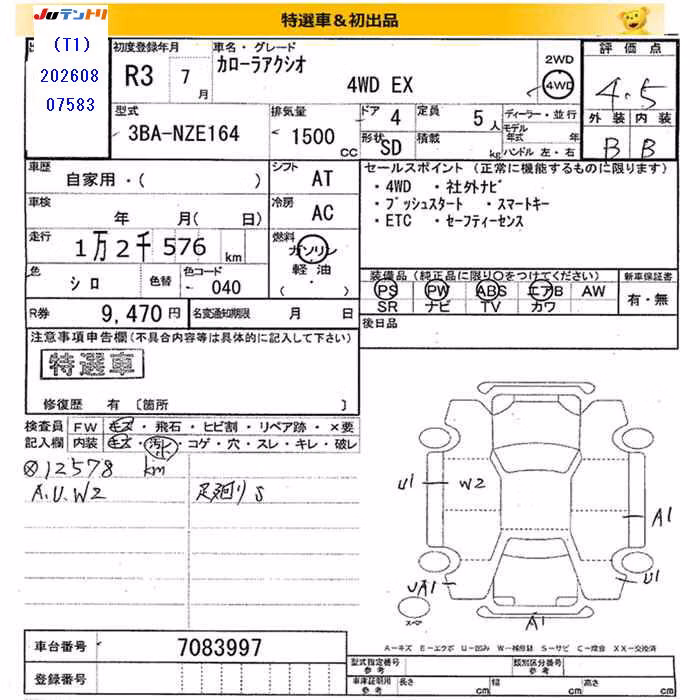 JUテントリ
特選車＆初出品
(T1)
202608
07583
初度登録年月
R3 7月
車名・グレード
カローラアクシオ
4WD EX
2WD
4WD
評価点
4.5
外装 内装
B B
型式
3BA-NZE164
排気量
1500 CC
ドア 4
定員 5人
形状 SD
積載 kg
ディーラー・並行
モデル年式 年
ハンドル 左・右
車歴
自家用・( )
シフト AT
車検
年 月( 日)
冷房 AC
走行
1万2千576 km
燃料
ガソリン
軽油
( ・ )
色 シロ
色替
色コード 040
R券 9,470円
名変通知期限 月 日
セールスポイント (正常に機能するものに限ります)
・4WD ・社外ナビ
・プッシュスタート ・スマートキー
・ETC ・セーフティーセンス
装備品(純正品に限り○をつけてください)
新車保証書
PS PW ABS エアB AW
SR ナビ TV カワ
有・無
後日品
注意事項申告欄(不具合内容等は具体的に記入して下さい)
特選車
修復歴 有 〔箇所 〕
検査員記入欄
FW キズ・飛石・ヒビ割・リペア跡・×要
内装 キズ・汚れ・コゲ・穴・スレ・キレ・破レ
⊗12578 km
A.U.W2
足廻りS
U1
W2
A1
UA1
U1
A1
スマ
A-キズ E-エクボ U-凹み W-補修跡 S-サビ C-腐食 XX-交換済
車台番号 7083997
登録番号
型式指定番号 参考
類別区分番号 参考
車庫証明用 参考
長さ cm
幅 cm
高さ cm